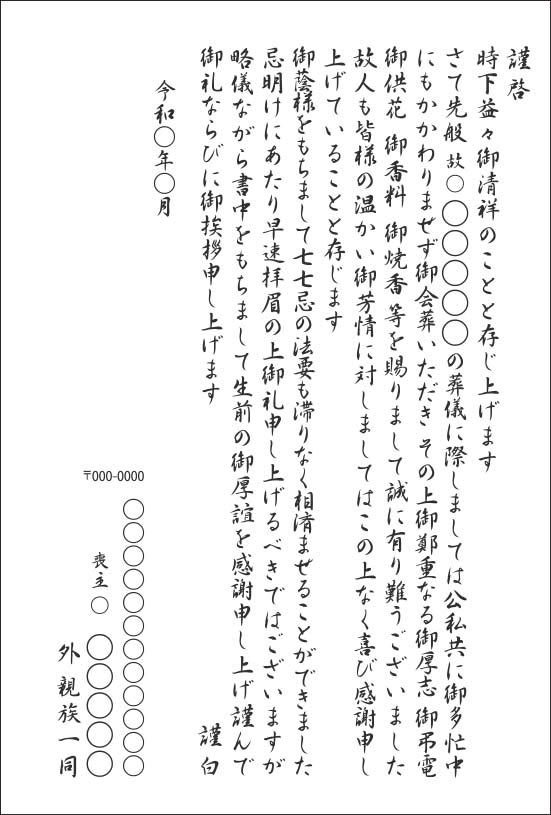 謹啓
時下益々御清祥のことと存じ上げます
さて先般 故 ○ ○○○○○の葬儀に際しましては公私共に御多忙中
にもかかわりませず御会葬いただき その上御鄭重なる御厚志 御弔電
御供花 御香料 御焼香 等を賜りまして誠に有り難うございました
故人も皆様の温かい御芳情に対しましてはこの上なく喜び感謝申し
上げていることと存じます
御蔭様をもちまして七七忌の法要も滞りなく相済ませることができました
忌明けにあたり早速拝眉の上御礼申し上げるべきではございますが
略儀ながら書中をもちまして生前の御厚誼を感謝申し上げ謹んで
御礼ならびに御挨拶申し上げます
謹白
令和○年○月
〒000-0000
○○○○○○○○○○○○
喪主 ○ ○○○○○
外 親族一同